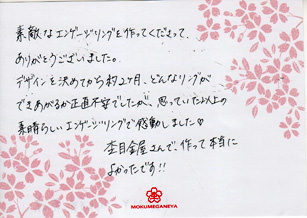 素敵なエンゲージリングを作ってくださって、
ありがとうございました。
デザインを決めてから約2ヶ月、どんなリングが
できあがるか正直不安でしたが、思っていた以上の
素晴らしいエンゲージリングで感動しました♡
杢目金屋さんで、作って本当に
よかったです!!
MOKUMEGANEYA